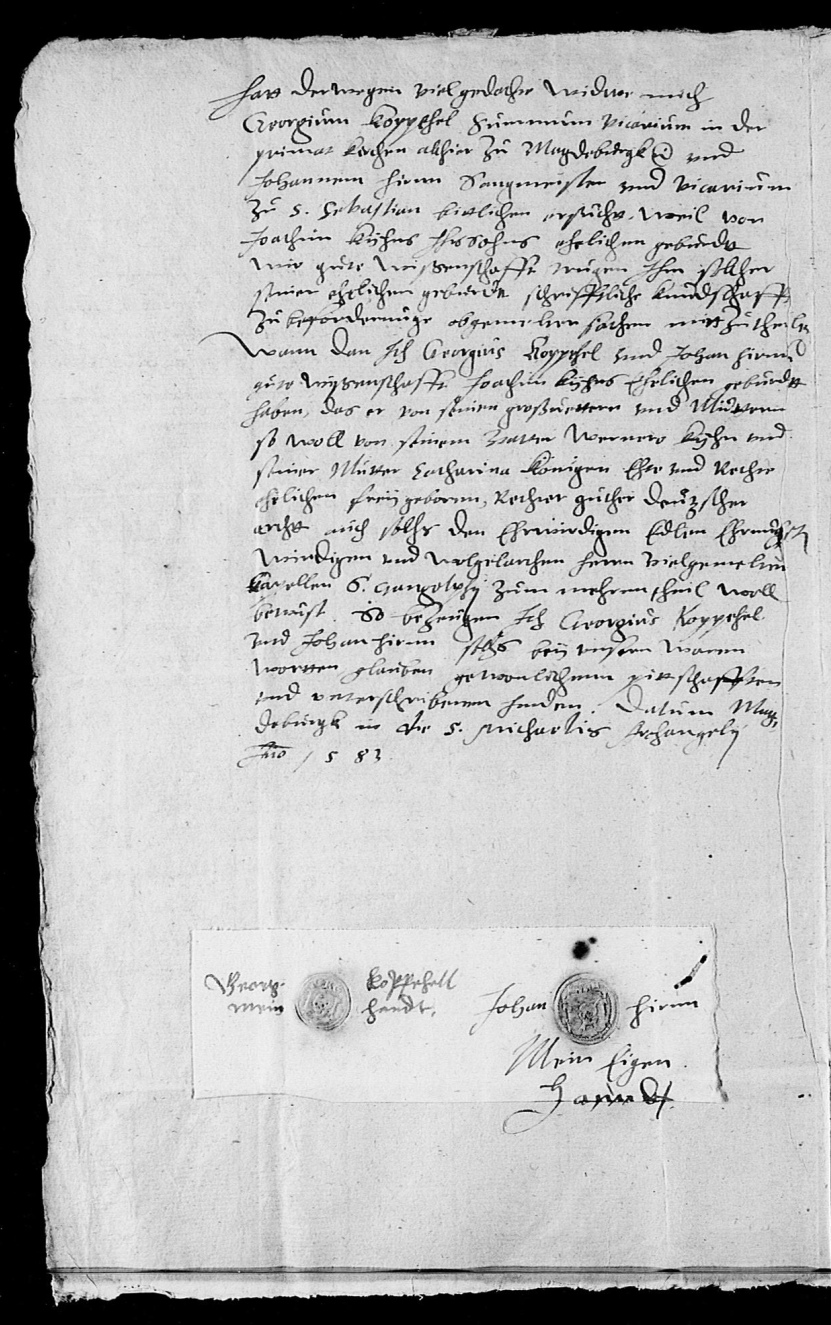 hatt derwegen vielgedachte Widwe mich
Georgium Koppehel Summum vicarium in der
primat kirchen alhier zu Magdeburgk und
Johannem hirnn Sangmeister und vicarium
zu S. Sebastian bitlichen ersucht, weil von
Joachim Kuhns Ihrs Sohns ehelichen geburdt
wir gute wissenschafft trugen Ihm solcher
seiner ehelichen geburdt schrifftliche kundschafft
zu beforderunge obgemelter sachen mitt zutheilen
Wann dan Ich Georgius Koppehel und Johan hirnn
gute wissenschafft Joachim Kuhns Ehelichen geburdt
haben, das er von seinen großvettern und Müttern
so woll von seinem Vatter Wernero Kuhn und
seiner Mutter Catharina Königen Ehte und Rechte
ehelichen frey geboren, Rechter guther deutzscher
arth auch solchs den Ehrwirdigen Edlen Ehrnvhesten
Wirdigen und wolgelarthen herrn vielgemelten
Capellen S. Gangolphj zum mehrentheil woll
bewust. So bezeugen Ich Georgius Koppehel
und Johan hirnn solchs bey unsern waren
wortten glauben gewonlichenn pittschafften
und unterschriebenen henden. Datum Mag,
deburgk in die S. Michaelis Archangelj
Ano 1583
Georg Koppehell
mein handt,
Johan hirnn
Mein Eigen
Handt